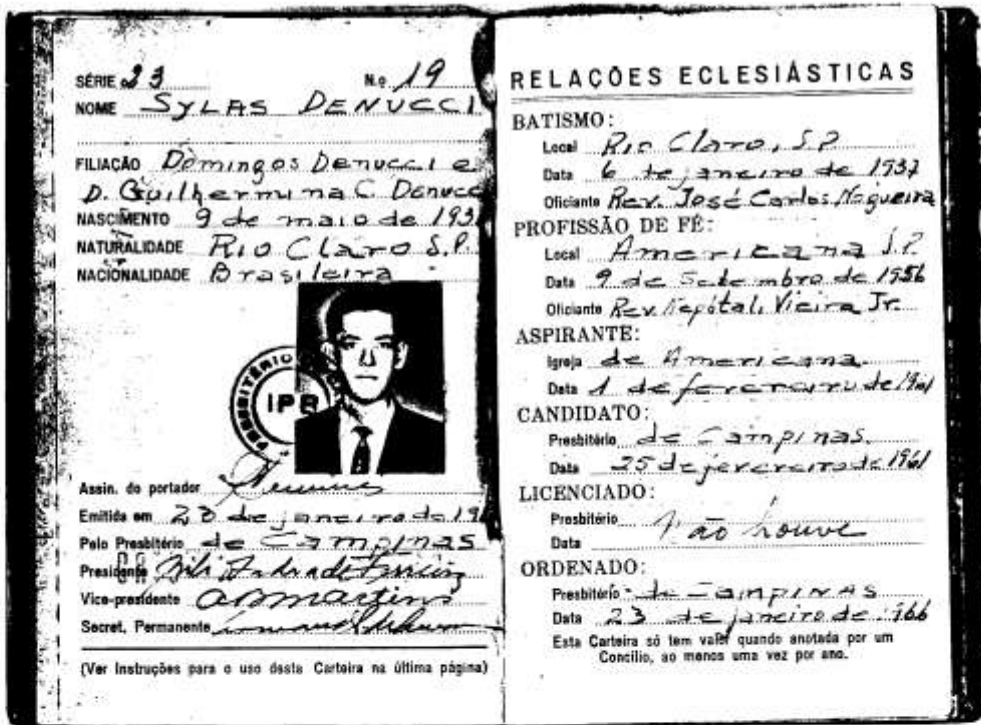 SÉRIE 23 N.o 19
NOME SYLAS DENUCCI
FILIAÇÃO Domingos Denucci e
D. Guilhermina C. Denucci
NASCIMENTO 9 de maio de 193
NATURALIDADE Rio Claro S.P.
NACIONALIDADE Brasileira
PRESBITÉRIO
IPB
Assin. do portador
Emitida em 23 de janeiro de 19
Pelo Presbitério de Campinas
Presidente Andrade Ferreira
Vice-presidente
Secret. Permanente
(Ver Instruções para o uso desta Carteira na última página)
RELAÇÕES ECLESIÁSTICAS
BATISMO:
Local Rio Claro, S.P.
Data 6 de janeiro de 1937
Oficiante Rev. José Carlos Nogueira
PROFISSÃO DE FÉ:
Local Americana S.P.
Data 9 de Setembro de 1956
Oficiante Rev. Vieira Jr.
ASPIRANTE:
Igreja de Americana
Data 1 de fevereiro de 1961
CANDIDATO:
Presbitério de Campinas.
Data 25 de fevereiro de 1961
LICENCIADO:
Presbitério Não houve
Data
ORDENADO:
Presbitério de CAMPINAS
Data 23 de janeiro de 1966
Esta Carteira só tem valor quando anotada por um
Concílio, ao menos uma vez por ano.